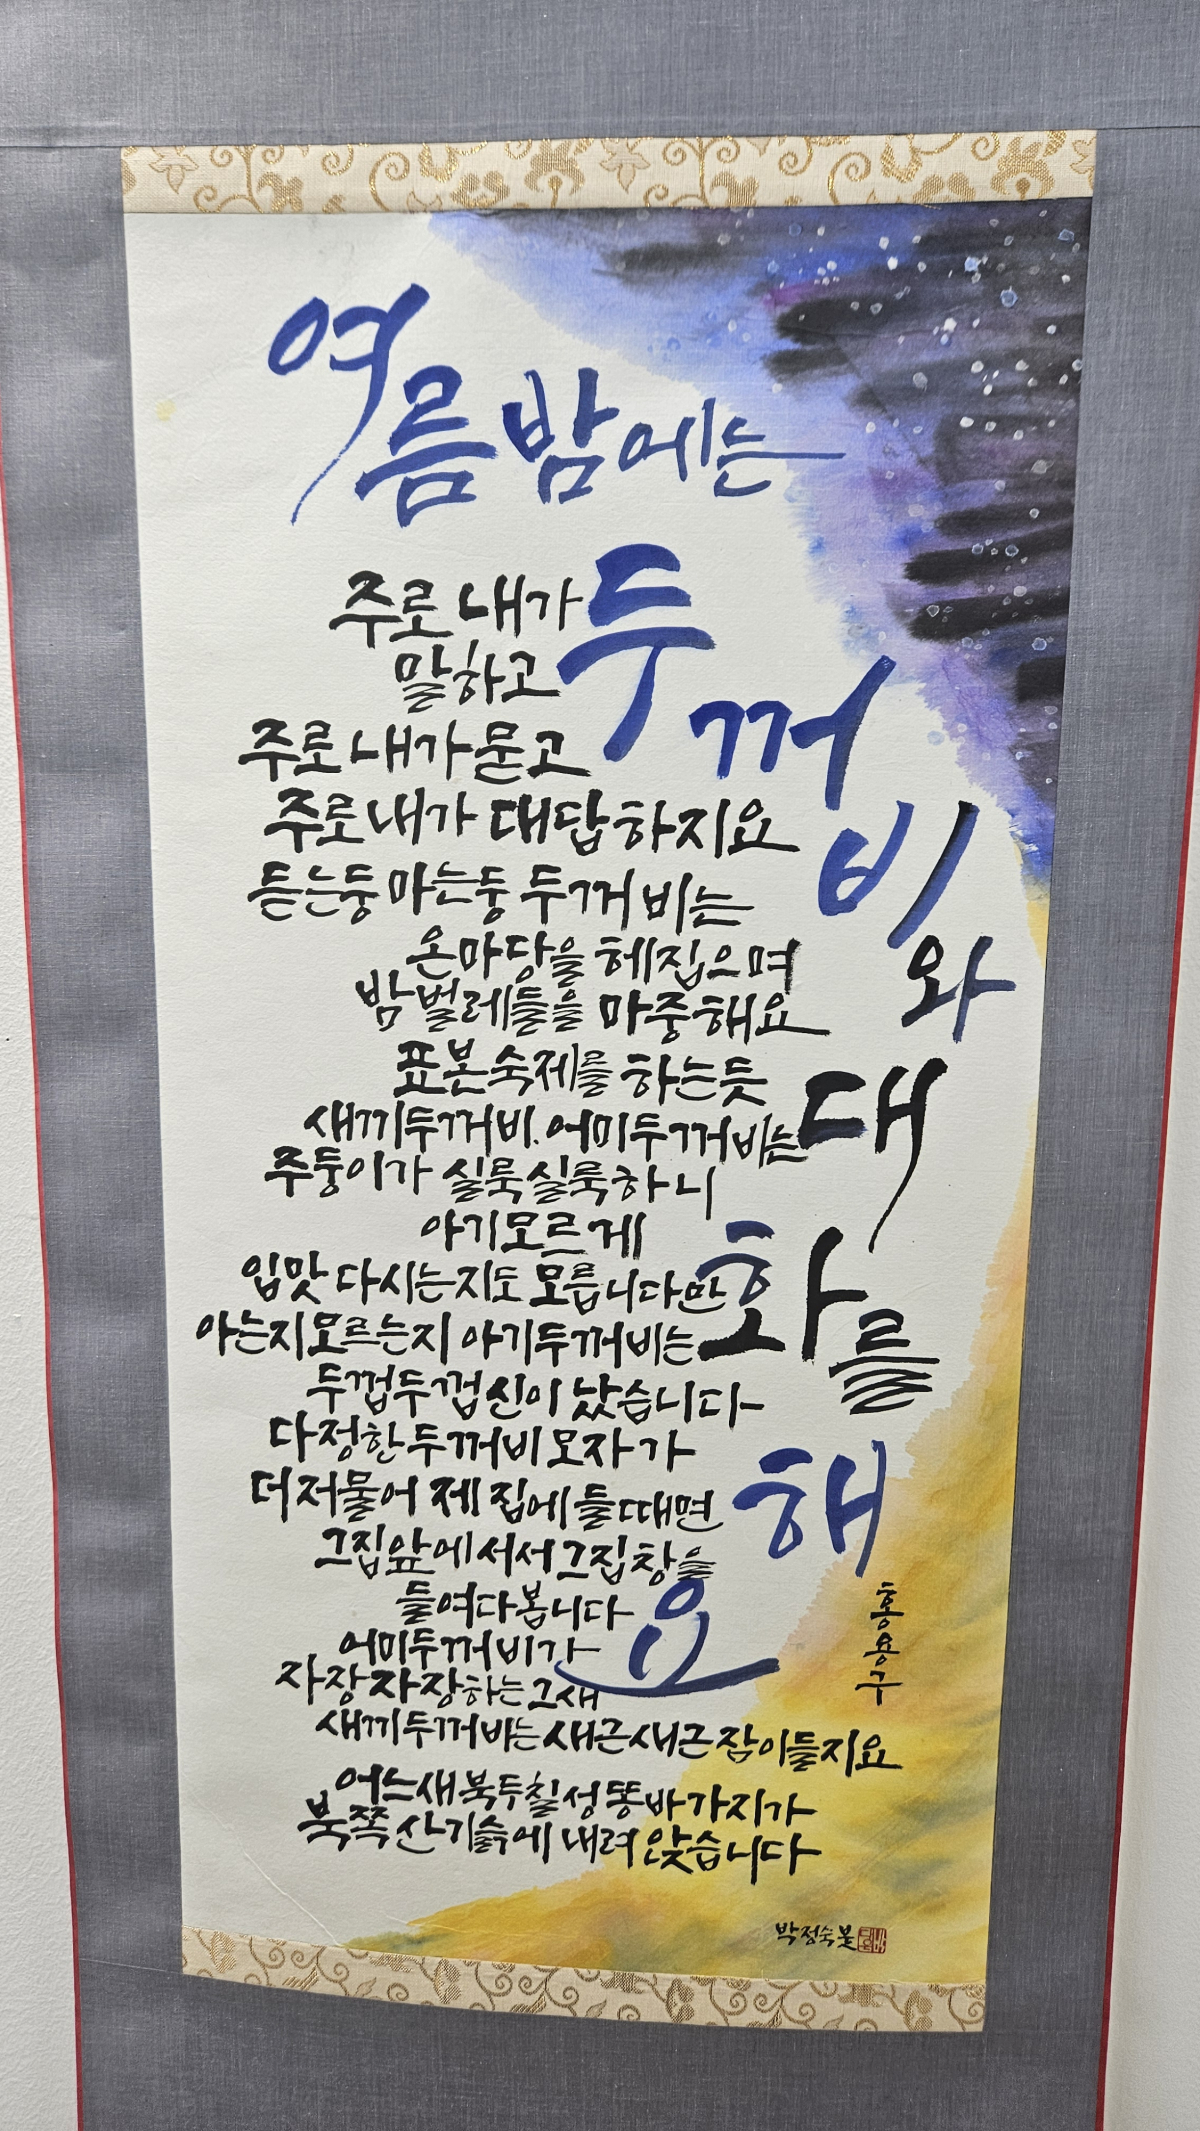 여름밤에는
두꺼비와
대화를
해
요
홍용구
주로 내가
말하고
주로 내가 묻고
주로 내가 대답하지요
듣는둥 마는둥 두꺼비는
온마당을 헤집으며
밤벌레들을 마중해요
표본숙제를 하는듯
새끼두꺼비. 어미두꺼비는
주둥이가 실룩실룩하니
아기모르게
입맛 다시는지도 모릅니다만
아는지모르는지 아기두꺼비는
두껍두껍 신이 났습니다
다정한 두꺼비 모자가
더 저물어 제 집에 들 때면
그집앞에 서서 그집창을
들여다봅니다
어미두꺼비가
자장자장하는 그새
새끼두꺼비는 새근새근 잠이들지요
어느새 북두칠성 똥바가지가
북쪽 산기슭에 내려 앉습니다
박정숙 붓